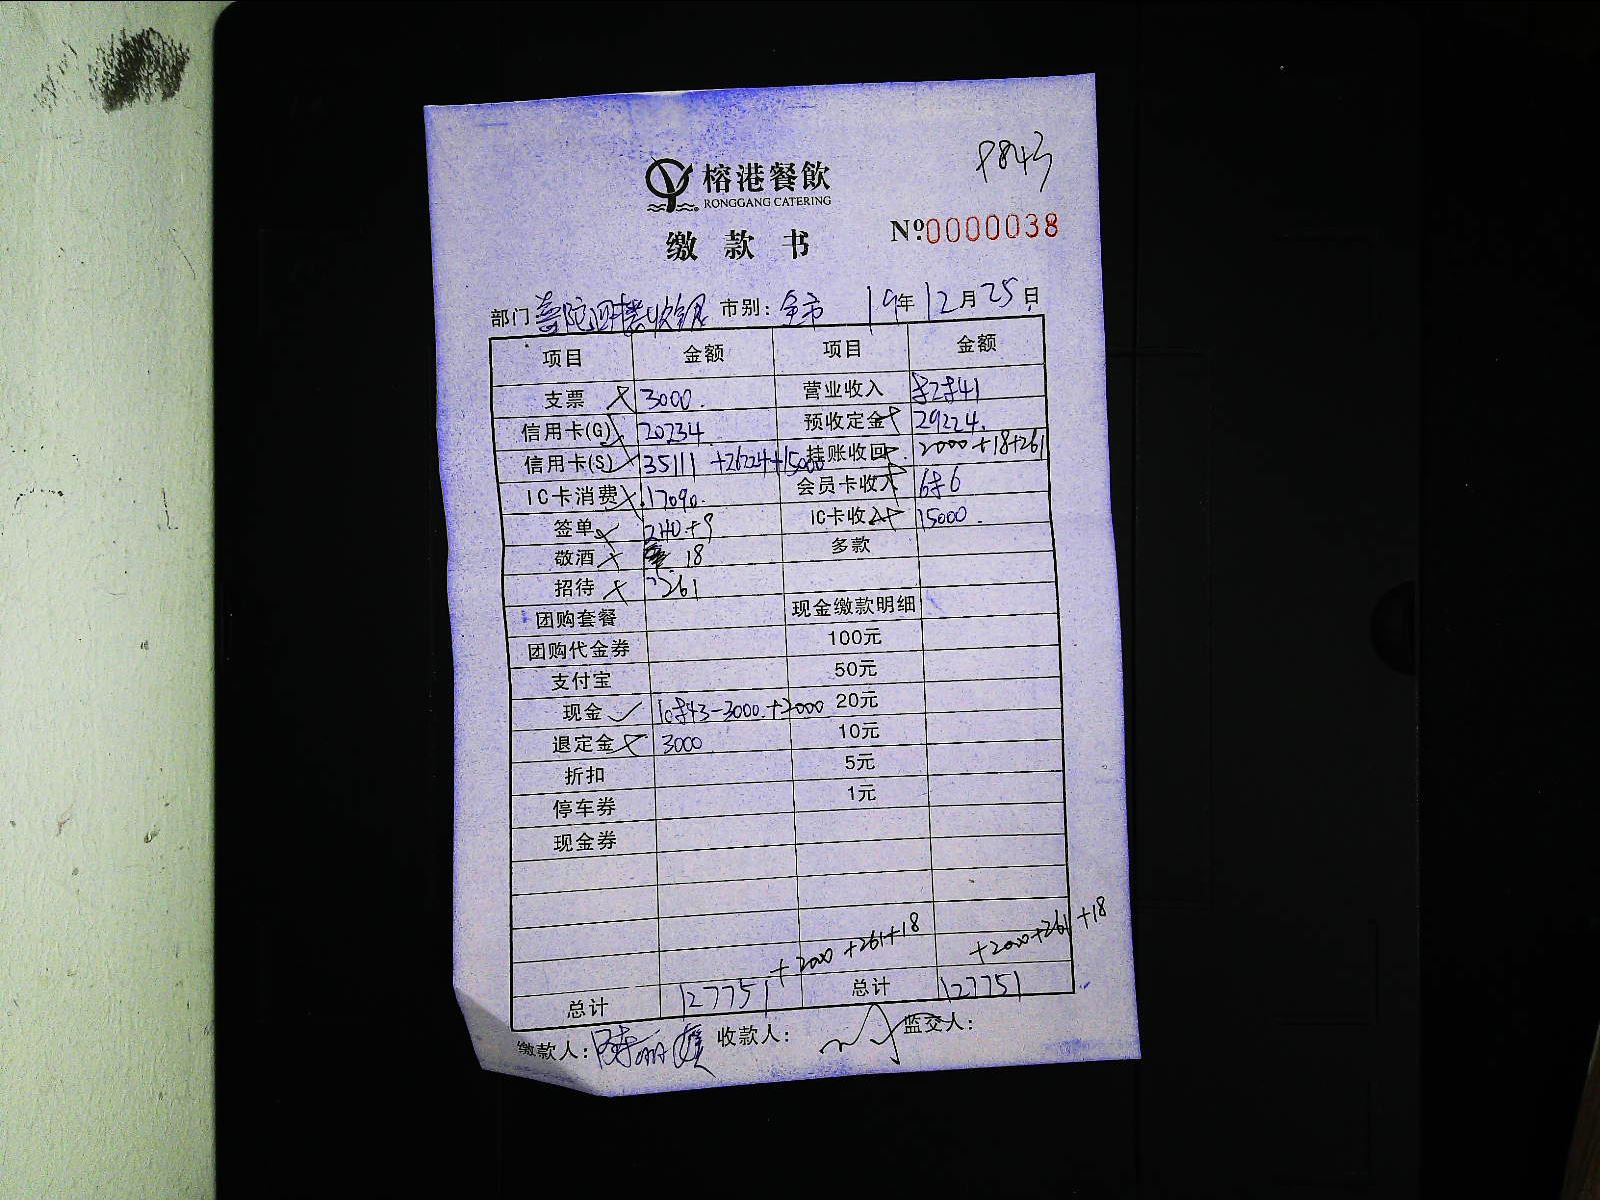 9843
榕港餐飲
RONGGANG CATERING
缴款书
№0000038
部门 普陀四楼收银 市别: 全市 19年12月25日
项目 金额 项目 金额
支票 × 3000. 营业收入 82841
信用卡(G) × 20234. 预收定金 × 29224.
信用卡(S) ✓ 35111 +26224+15000 挂账收回 × 2000+18+261
IC卡消费 × 17090. 会员卡收入 × 686
签单 × 240+9 IC卡收入 × 15000.
敬酒 × 18 多款
招待 × 261
团购套餐 现金缴款明细
团购代金券 100元
支付宝 50元
现金 ✓ 10843-3000.+2000 20元
退定金 × 3000 10元
折扣 5元
停车券 1元
现金券
+2000 +261+18 +2000+261+18
总计 127751 总计 127751
缴款人: 陈 收款人: 监交人: